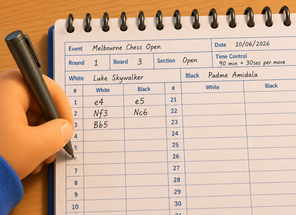 Event Melbourne Chess Open Date 10/06/2026
Round 1 Board 3 Section Open Time Control 90 min + 30sec per move
White Luke Skywalker Black Padme Amidala
# White Black # White Black
1 e4 e5 21
2 Nf3 Nc6 22
3 Bb5 23
4 24
5 25
26
7 27
8 28
9 29
10 30